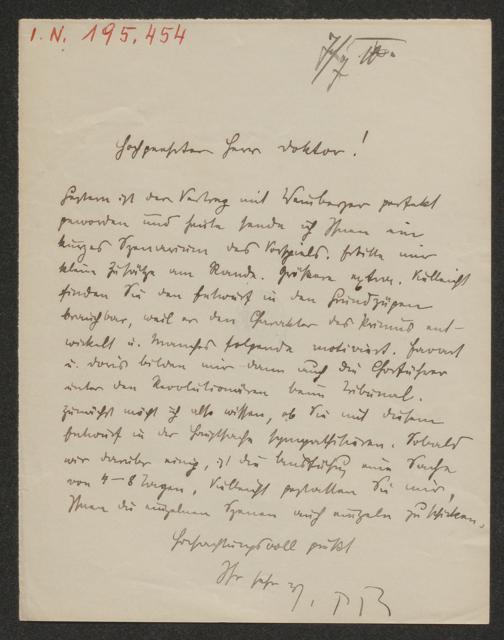 I. N. 195.454
Hochgeehrter Herr Doktor!
Gestern ist der Vertrag mit Weinberger perfekt
geworden und heute sende ich Ihnen ein
kurzes Szenarium des Vorspiels. Erbitte mir
kleine Zusätze am Rande. Größere extra. Vielleicht
finden Sie den Entwurf in den Grundzügen
brauchbar, weil er den Charakter des Primus ent-
wickelt u. Manches folgende motiviert. Favart
u. Doris bilden mir dann auch die Chorführer
unter den Revolutionären beim Tribunal.
Zunächst möcht ich also wissen, ob Sie mit diesem
Entwurf in der Hauptsache sympathisieren. Sobald
wir darüber einig, ist die Ausführung eine Sache
von 4–8 Tagen. Vielleicht gestatten Sie mir,
Ihnen die einzelnen Szenen auch einzeln zu schicken.
Hochachtungsvoll grüßt
Ihr sehr